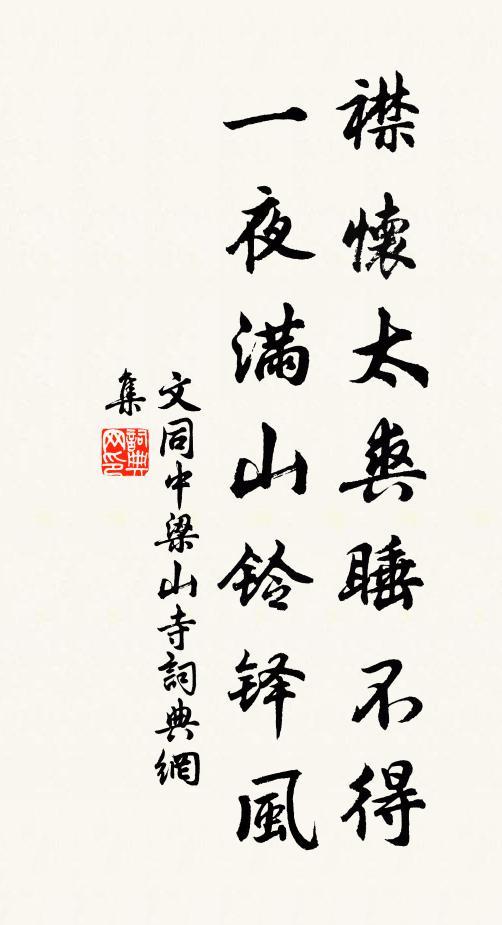 襟懷太爽睡不得
一夜滿山鈴铎風
文同中梁山寺詞典網
集
詞典
网印